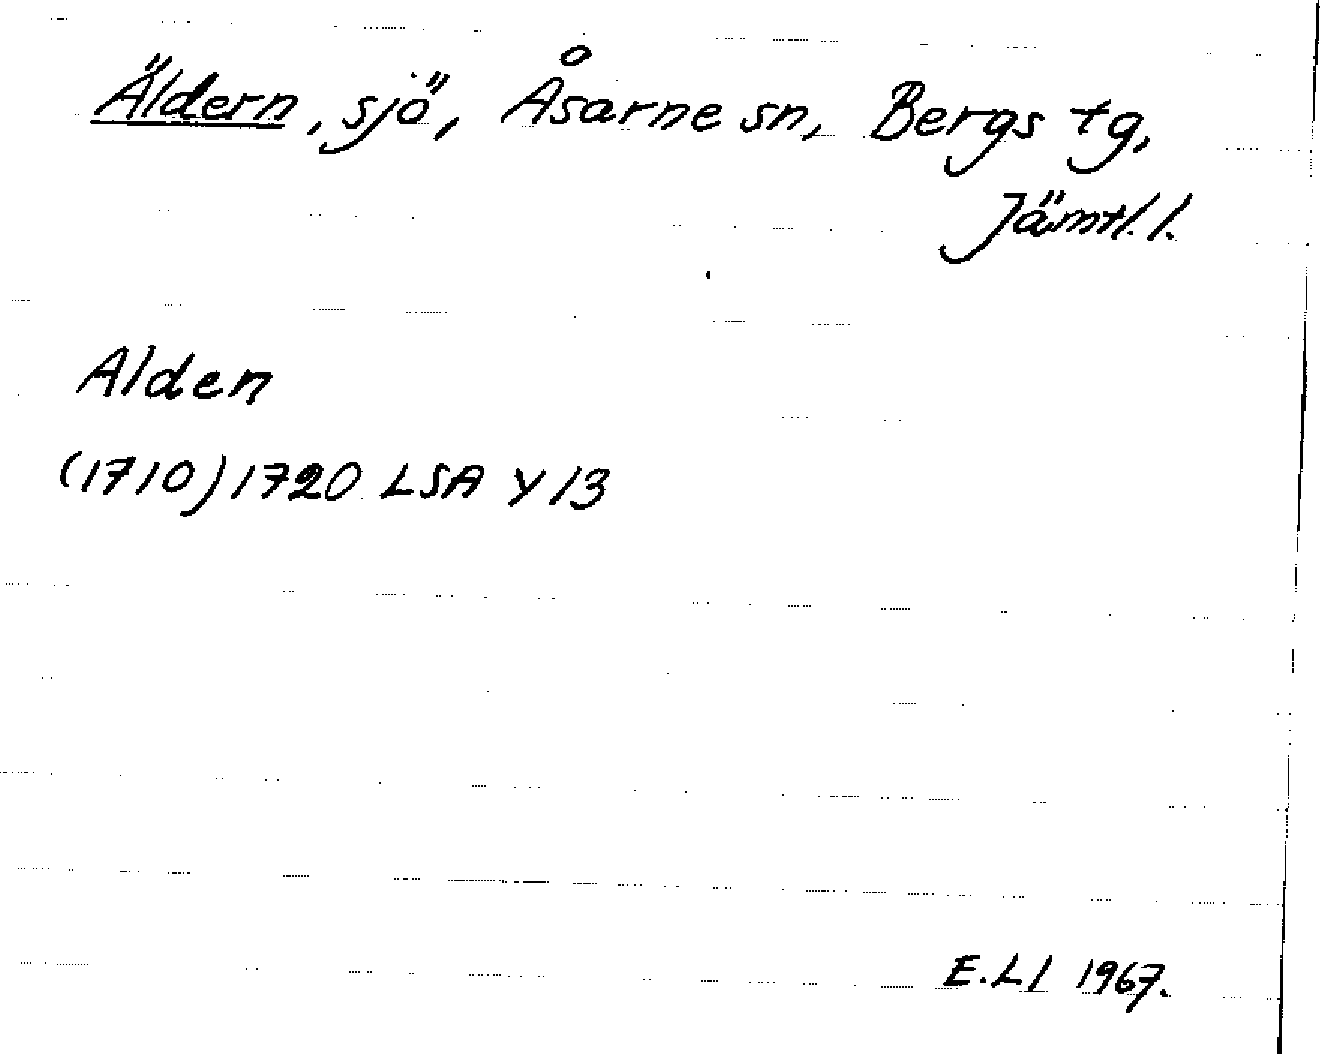 Äldern, sjö, Åsarne sn, Bergs tg,
Jämtl. l.
Alden
(1710) 1720 LSA Y 13
E.Ll 1967.